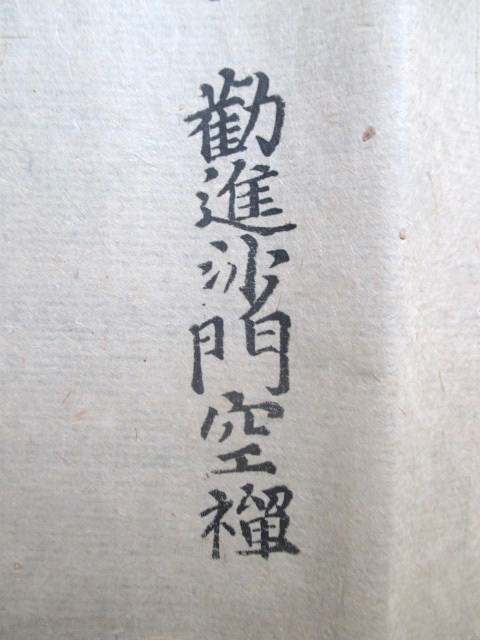 勸進沙門空禪